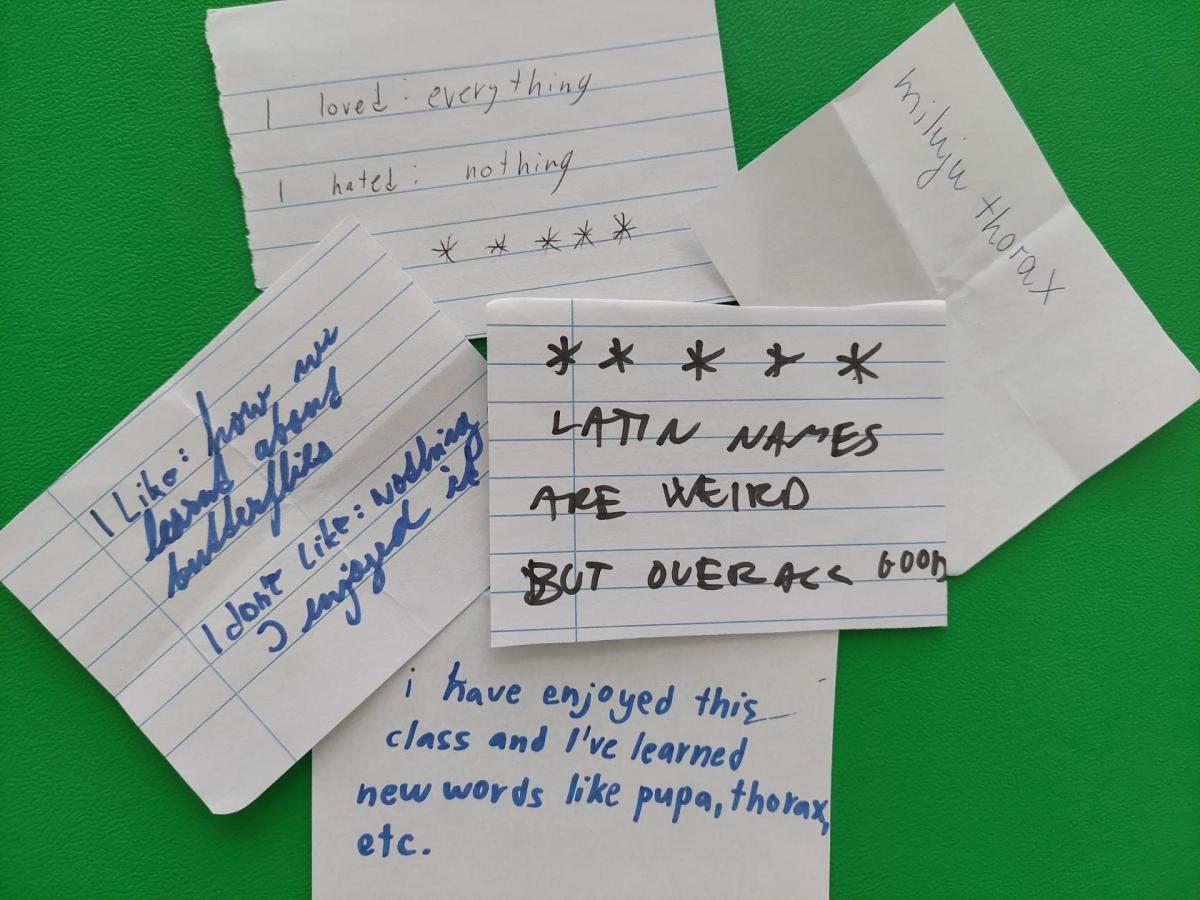 I loved: everything
I hated: nothing
* * * * *
miluju thorax
I Like: how we
learnt about
butterflies
I dont like: nothing
I enjoyed it
* * * * *
LATIN NAMES
ARE WEIRD
BUT OVERALL GOOD
i have enjoyed this
class and I've learned
new words like pupa, thorax,
etc.